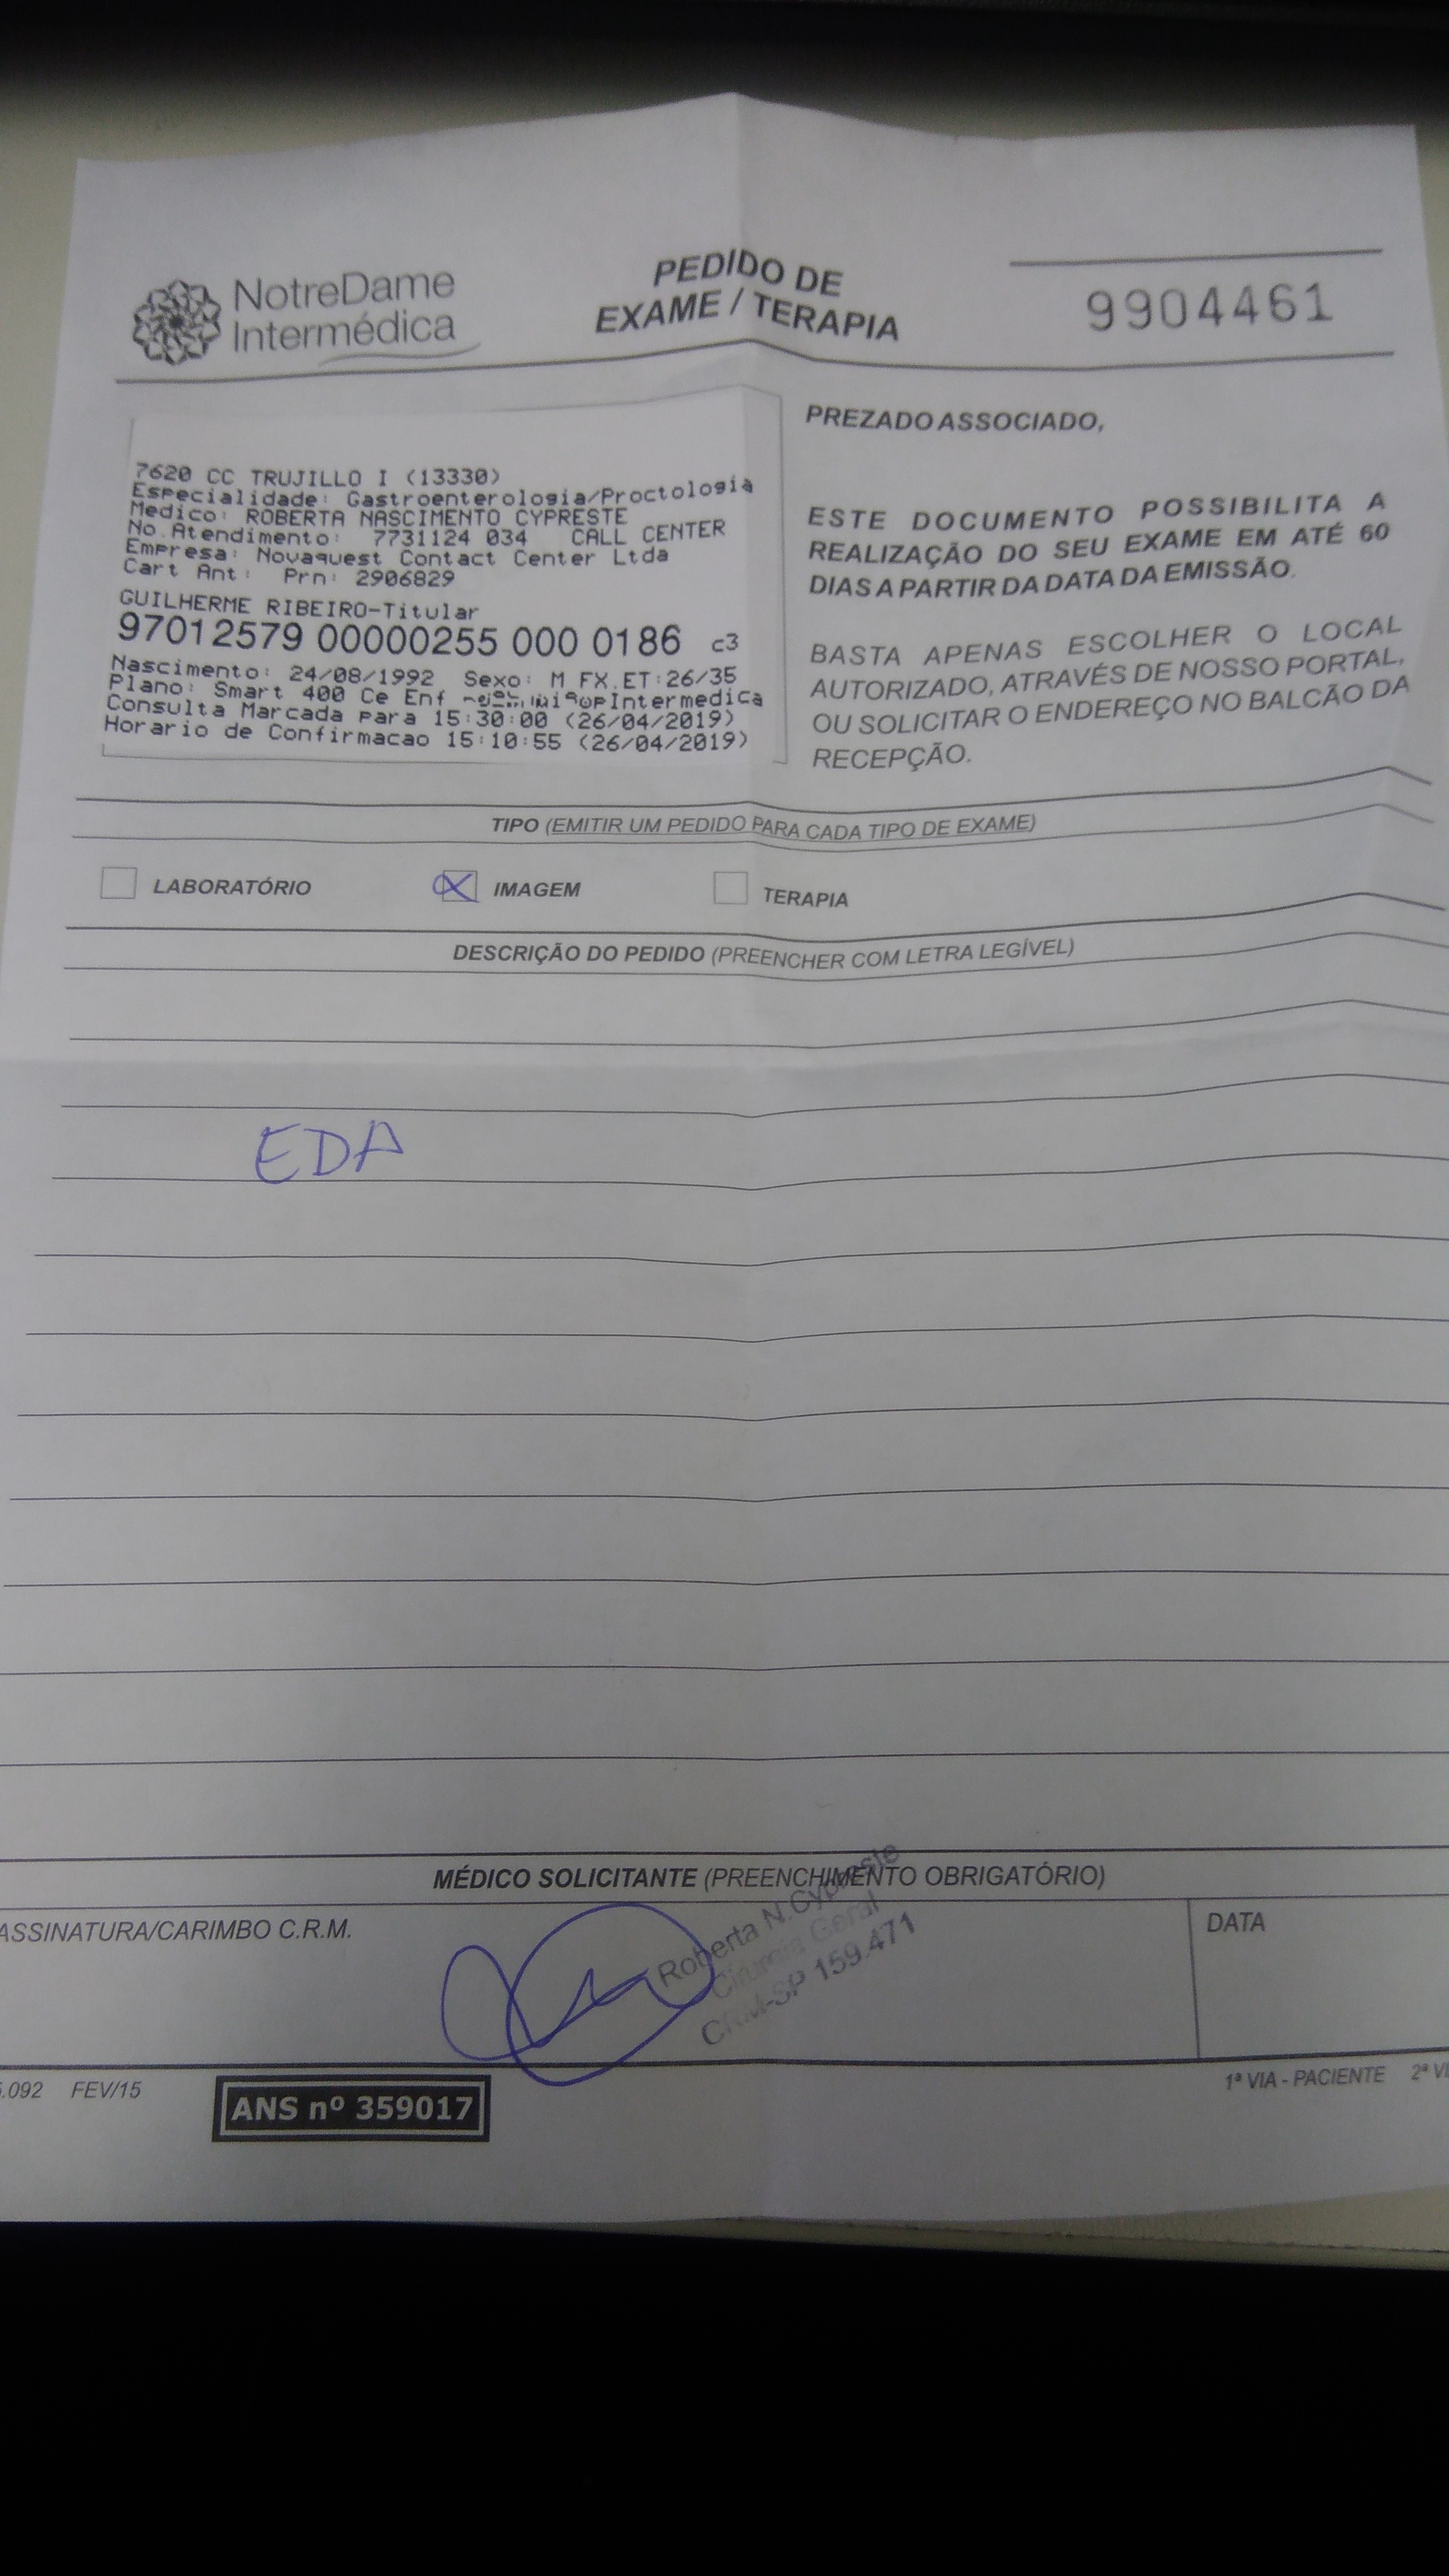 NotreDame
Intermédica
PEDIDO DE
EXAME / TERAPIA
9904461
7620 CC TRUJILLO I (13330)
Especialidade: Gastroenterologia/Proctologia
Medico: ROBERTA NASCIMENTO CYPRESTE
No.Atendimento: 7731124 034 CALL CENTER
Empresa: Novaquest Contact Center Ltda
Cart Ant: Prn: 2906829
GUILHERME RIBEIRO-Titular
97012579 00000255 000 0186 c3
Nascimento: 24/08/1992 Sexo: M FX.ET:26/35
Plano: Smart 400 Ce Enf
Consulta Marcada para 15:30:00 (26/04/2019)
Horario de Confirmacao 15:10:55 (26/04/2019)
PREZADO ASSOCIADO,
ESTE DOCUMENTO POSSIBILITA A
REALIZAÇÃO DO SEU EXAME EM ATÉ 60
DIAS A PARTIR DA DATA DA EMISSÃO.
BASTA APENAS ESCOLHER O LOCAL
AUTORIZADO, ATRAVÉS DE NOSSO PORTAL,
OU SOLICITAR O ENDEREÇO NO BALCÃO DA
RECEPÇÃO.
TIPO (EMITIR UM PEDIDO PARA CADA TIPO DE EXAME)
LABORATÓRIO IMAGEM TERAPIA
DESCRIÇÃO DO PEDIDO (PREENCHER COM LETRA LEGÍVEL)
EDA
MÉDICO SOLICITANTE (PREENCHIMENTO OBRIGATÓRIO)
ASSINATURA/CARIMBO C.R.M.
Roberta N.Cypreste
Cirurgia Geral
CRM-SP 159.471
DATA
.092 FEV/15
ANS nº 359017
1ª VIA - PACIENTE 2ª